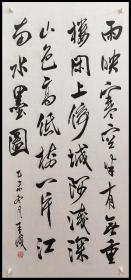 雨映寒空半有無重
樓閑上倚城隅淺深
山色高低樹一片江
南水墨圖